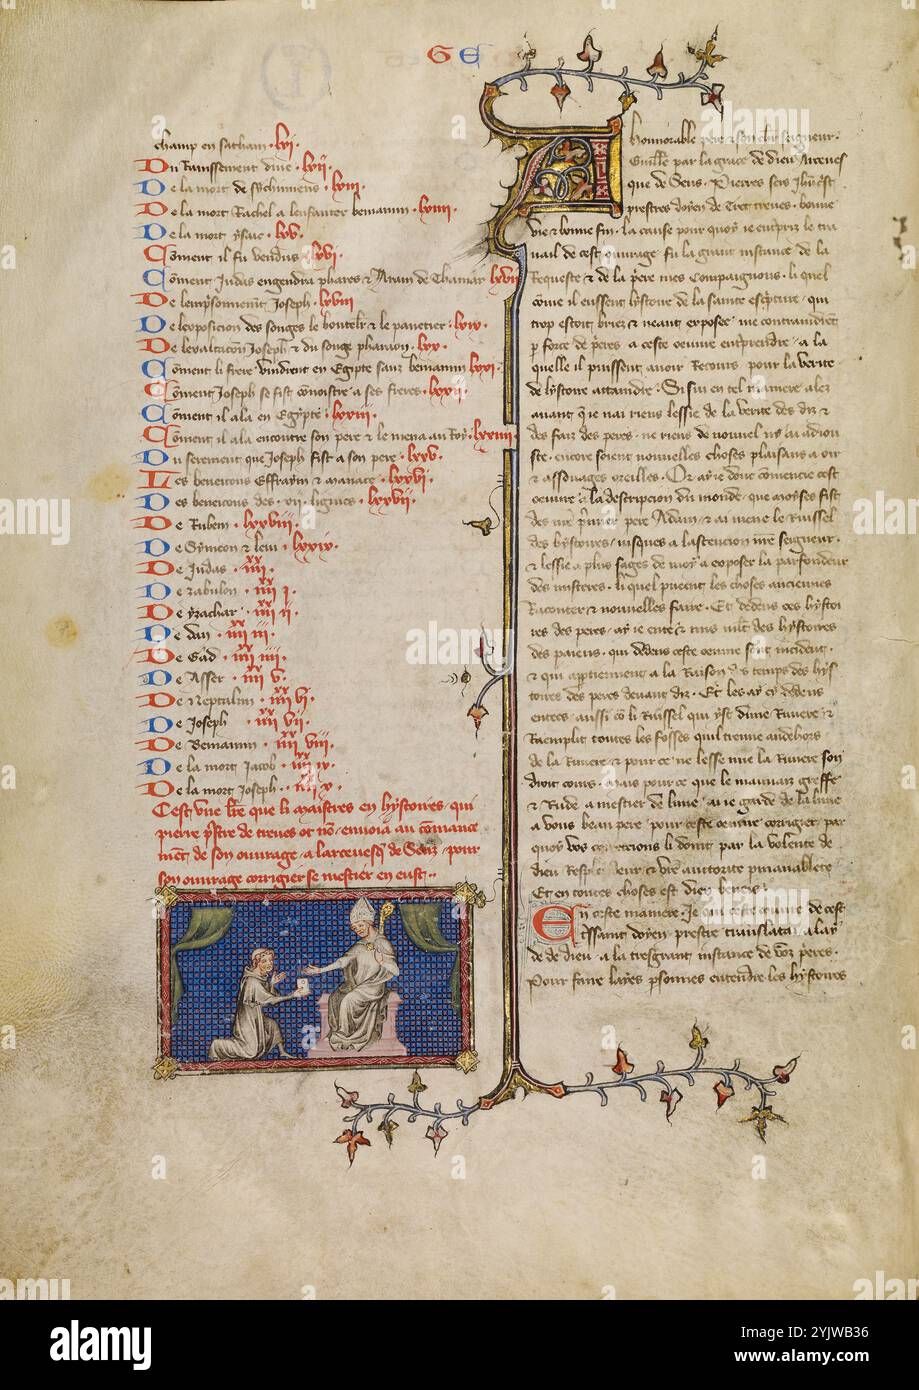 G E
champ en sacham · lxi ·
Du Ranissement dine · lxii ·
De la mort de sychimiens · lxiii ·
De la mort Rachel a lenfanter beniamin · lxiiii ·
De la mort ysaac · lxv ·
Coment il fu vendus · lxvi ·
Coment Judas engendra phares & Aram de Thamar lxvii
De lemprisonnement Joseph · lxviii
De lexposicion des songes le boutelr & le panetier · lxix ·
De lexaltacion Joseph & du songe pharaon · lxx ·
Coment li frere vindrent en Egipte sanz beniamin lxxi ·
Coment Joseph se fist connoistre a ses freres · lxxii ·
Coment il ala en Egypte · lxxiii ·
Coment il ala encontre son pere & le mena au Roy · lxxiiii
Du serement que Joseph fist a son pere · lxxv ·
Les beneicons Effraym & manace · lxxvi ·
Des beneicons des · vii · lignies · lxxvii ·
De Ruben · lxxviii ·
De Symeon & leui · lxxix ·
De Judas · iiii ·
De zabulon · iiii i ·
De yzachar · iiii ii ·
De dan · iiii iii ·
De Gad · iiii iiii ·
De Asser · iiii v ·
De Neptalim · iiii vi ·
De Joseph · iiii vii ·
De Beniamin · iiii viii ·
De la mort Jacob · iiii ix ·
De la mort Joseph · iiii x ·
Cest vne lre que li maistres en hystoires, qui
pierre prestre de troies ot non · enuoia au comance
ment de son ouurage · a larceuesq de Senz · pour
son ouurage corrigier se mestier en eust ··
A honnorable pere & son chier seigneur ·
Guill'e par la grace de dieu Arceues
que de Sens · Pierres sers Jhucrist
prestres doyen de Troies · bonne
vie & bonne fin · la cause pour quoy ie empriz le tra
uail de cest ouurage fu la grant instance de la
Requeste & de la priere mes compaignons · li quel
come il eussent lystoire de la sainte escripture · qui
trop estoit briez & neant exposee me contraindrent
p force de prieres a ceste oeuure entprendre · a la
quelle il puissent auoir Recours pour la verite
de lystoire attaindre · Si fui en tel maniere alez
auant que ie nai riens lessie de la verite des diz &
des faiz des peres · ne riens de nouuel ni ai adiou
ste · encore soient nouuelles choses plaisans a oir
& assouages oreilles · Or ay ie donc comencie cest
oeuure a la description du monde · que moyses fist
des nre primier pere Adam · & ai mene le Ruissel
des hystoires · iusques a lascencion nre seigneur ·
& lessie a plus sages de moy a exposer la parfondeur
des misteres · li quel pueent les choses anciennes
Raconter & nouuelles faire · Et dedens ces hystoi
res des peres · ay ie ente & mis mlt des hystoires
des paiens · qui dedens ceste oeuure sont incident ·
& qui apptiennent a la Raison des temps des hys
toires des peres deuant diz · Et les ay cy dedens
entees aussi co li Ruissel qui yst dune Riuiere &
Raemplit toutes les fosses quil treuue andehors
de la Riuiere & pour ce ne lesse mie la Riuiere son
droit cours · mais pour ce que le mauuaiz greffe
& Rude a mestier de lime ai ie garde de la lime
a vous beau pere pour ceste oeuure corrigier par
quoy vos corrections li doint par la volente de
dieu Resplendeur & vre auctorite pmanablete
Et en toutes choses est dieu beneis ·
En ceste maniere · Je qui ceste oeuure de cest
cissant doyen prestre translatai a lay
de de dieu · a la tresgrant instance de voz peres ·
Pour faire layes psonnes entendre les hystoires
alamy
Image ID: 2YJWB36
www.alamy.com